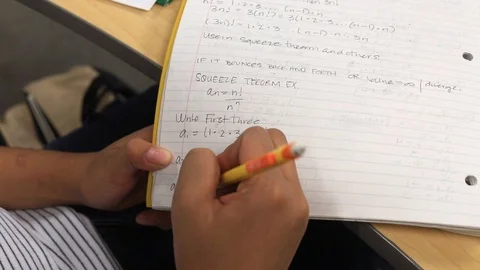 n! = 1·2·3... (n-1)·n
3n! = 3(n!) = 3(1·2·3... (n-1)·n)
(3n)! = 1·2·3... (n-1)·n... 3n
Use in squeeze theorem and others.
IF IT BOUNCES BACK AND FORTH OR value = ∞ / diverge.
SQUEEZE TEOREM EX.
an = n!
n^n
Write First three
a1 = (1·2·3
a
a